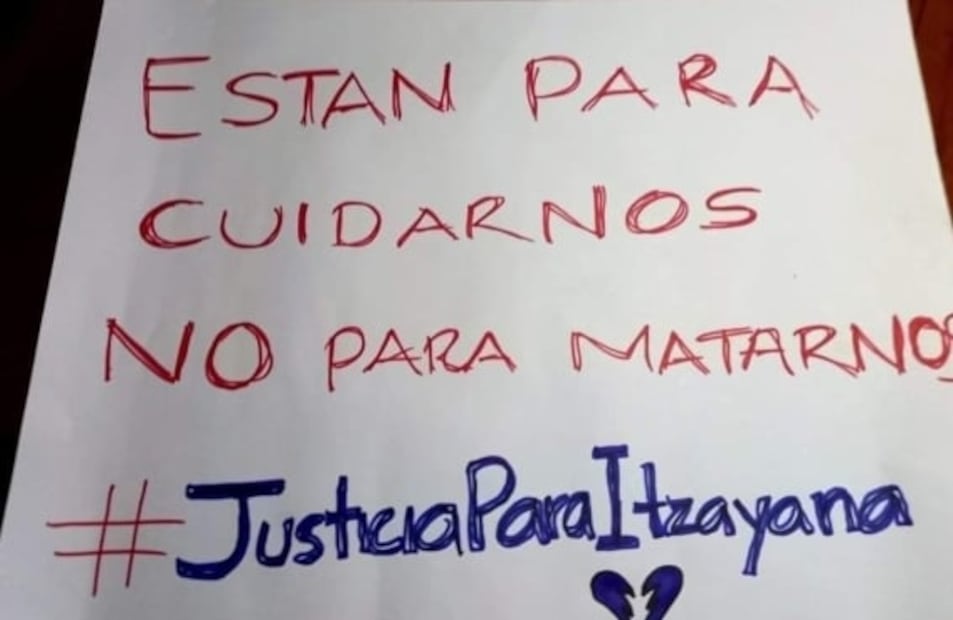 ESTAN PARA
CUIDARNOS
NO PARA MATARNOS
#JusticiaParaItzayana